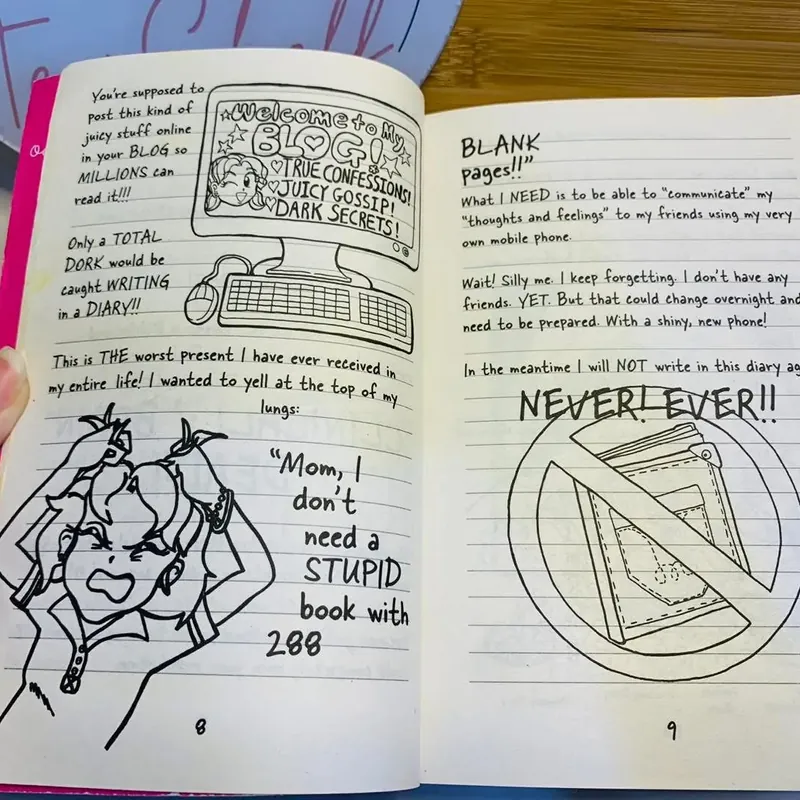 You're supposed to
post this kind of
juicy stuff online
in your BLOG so
MILLIONS can
read it!!!
Welcome to My
BLOG!
TRUE CONFESSIONS!
JUICY GOSSIP!
DARK SECRETS!
Only a TOTAL
DORK would be
caught WRITING
in a DIARY!!
This is THE worst present I have ever received in
my entire life! I wanted to yell at the top of my
lungs:
"Mom, I
don't
need a
STUPID
book with
288
8
BLANK
pages!!"
What I NEED is to be able to "communicate" my
"thoughts and feelings" to my friends using my very
own mobile phone.
Wait! Silly me. I keep forgetting. I don't have any
friends. YET. But that could change overnight and
need to be prepared. With a shiny, new phone!
In the meantime I will NOT write in this diary
NEVER! EVER!!
9